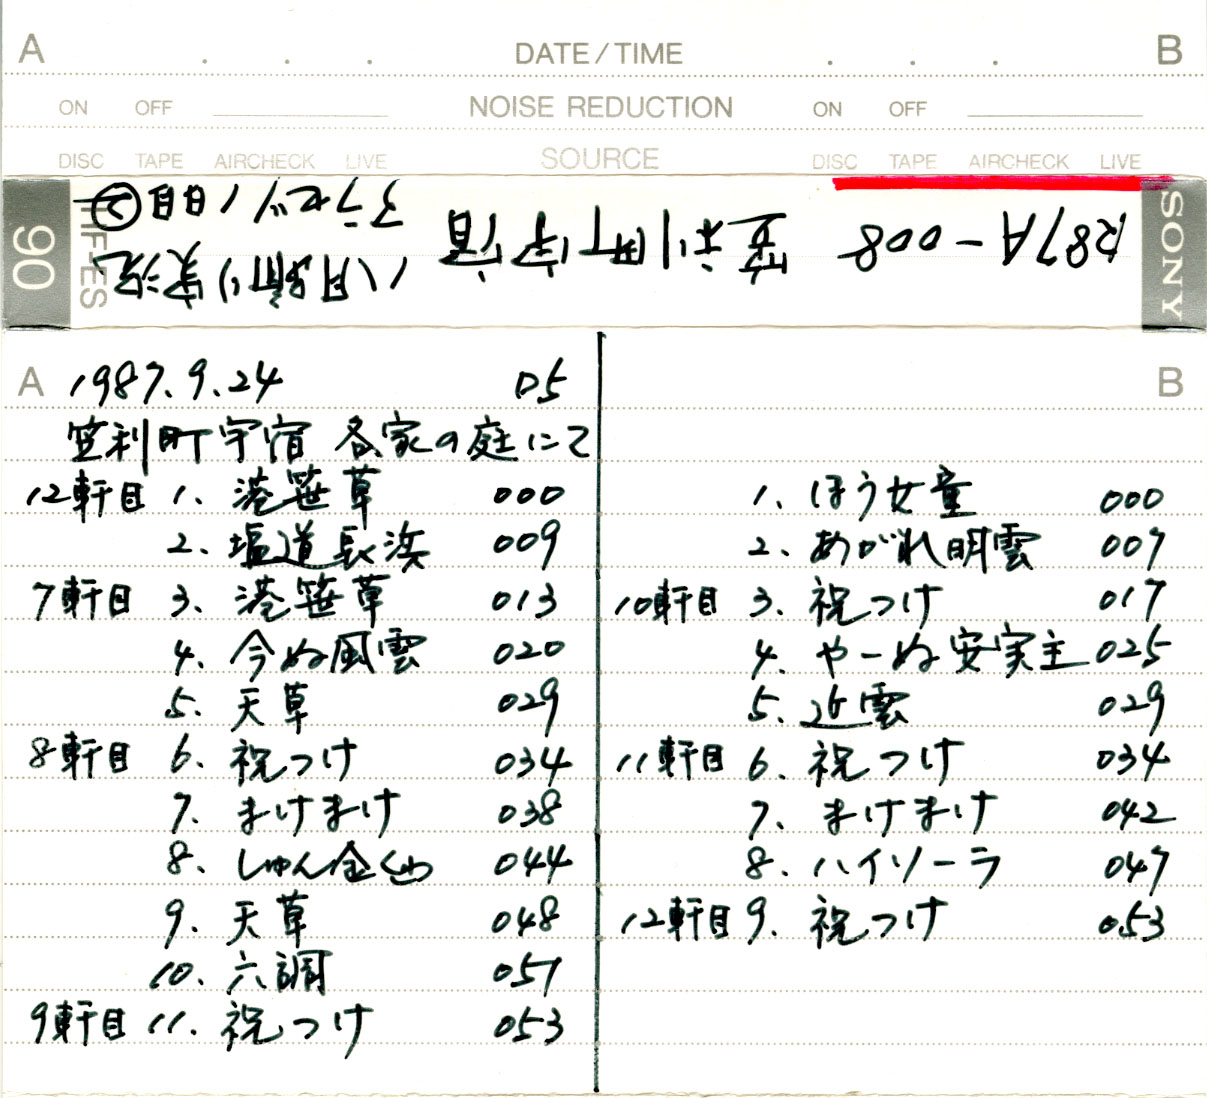 A DATE/TIME B
ON OFF NOISE REDUCTION ON OFF
DISC TAPE AIRCHECK LIVE SOURCE DISC TAPE AIRCHECK LIVE
SONY
R87A-008 笠利町宇宿 八月踊り実況
アラセツ1日目②
HF-ES 90
A 1987.9.24 05
笠利町宇宿 各家の庭にて
12軒目 1. 港笹草 000
2. 塩道長浜 009
7軒目 3. 港笹草 013
4. 今ぬ風雲 020
5. 天草 029
8軒目 6. 祝つけ 034
7. まけまけ 038
8. しゅん金くゎ 044
9. 天草 048
10. 六調 051
9軒目 11. 祝つけ 053
B
1. ほう女童 000
2. あがれ明雲 007
10軒目 3. 祝つけ 017
4. やーぬ安実主 025
5. 近雲 029
11軒目 6. 祝つけ 034
7. まけまけ 042
8. ハイソーラ 047
12軒目 9. 祝つけ 053